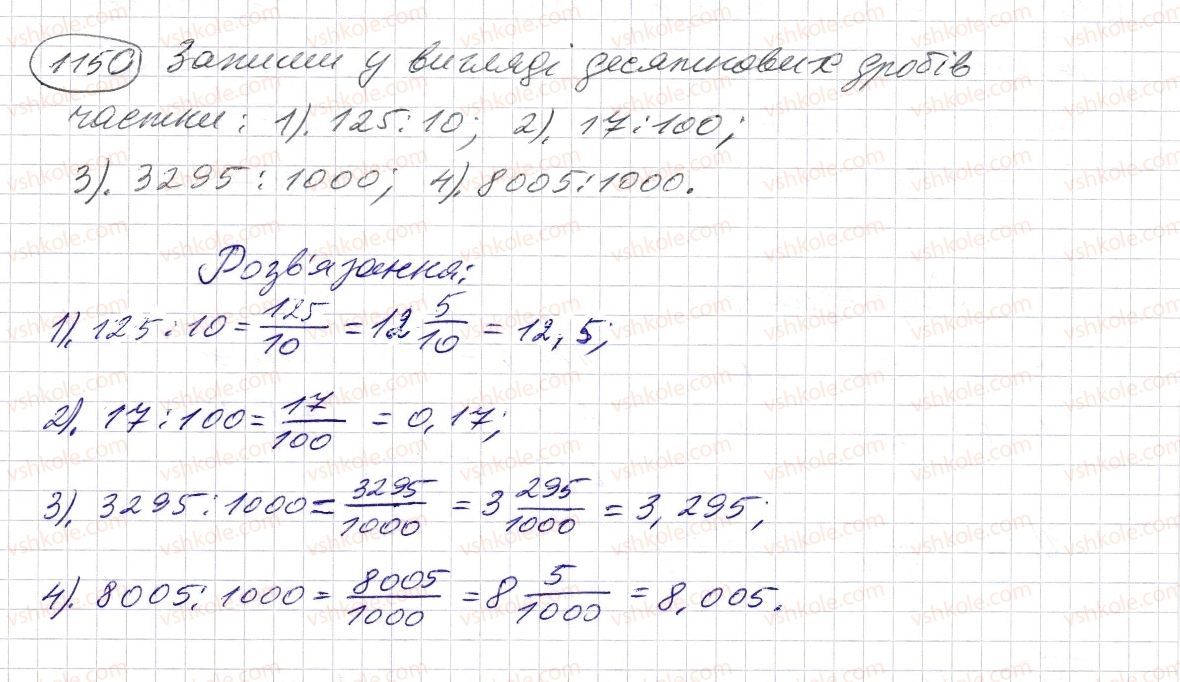 1150 Запиши у вигляді десяткових дробів
частки: 1). 125:10; 2). 17:100;
3). 3295:1000; 4). 8005:1000.
Розв'язання:
1). 125:10 = 125/10 = 12 5/10 = 12,5;
2). 17:100 = 17/100 = 0,17;
3). 3295:1000 = 3295/1000 = 3 295/1000 = 3,295;
4). 8005:1000 = 8005/1000 = 8 5/1000 = 8,005.